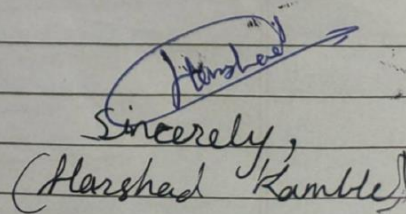 Harshad
Sincerely,
(Harshad Kamble)